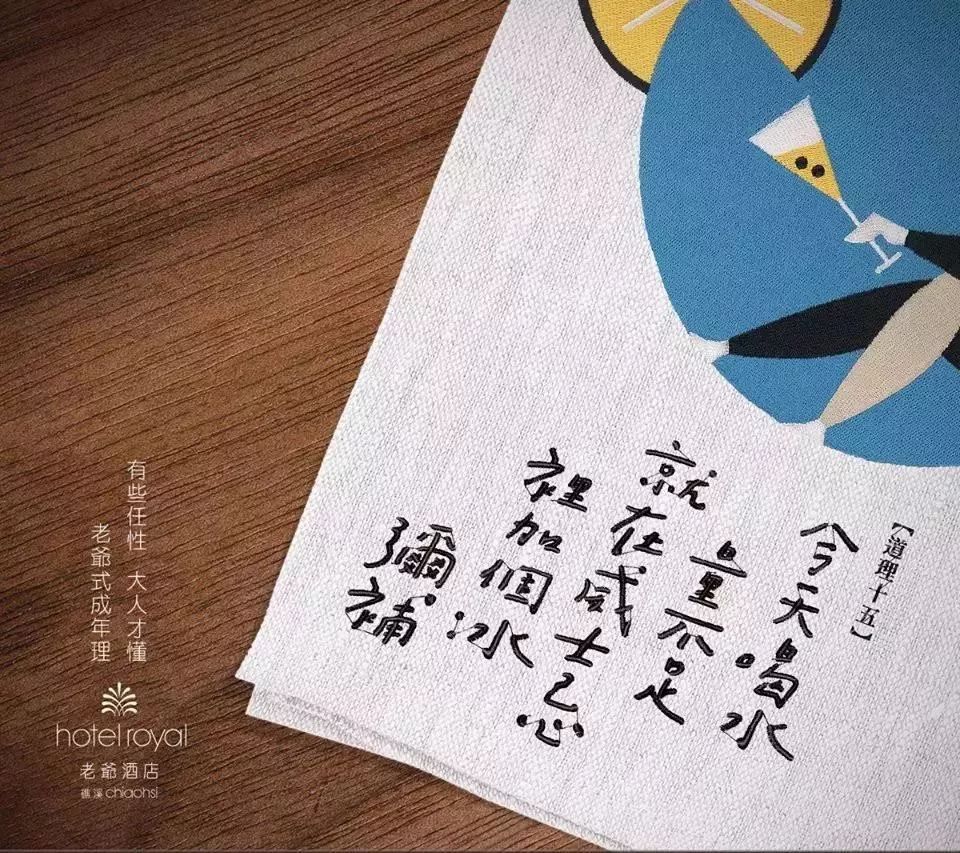 【道理十五】
今天喝水
量不足
就在威士忌
裡加個冰
彌補
有些任性 大人才懂
老爺式成年理
hotel royal
老爺酒店
礁溪 chiaohsi